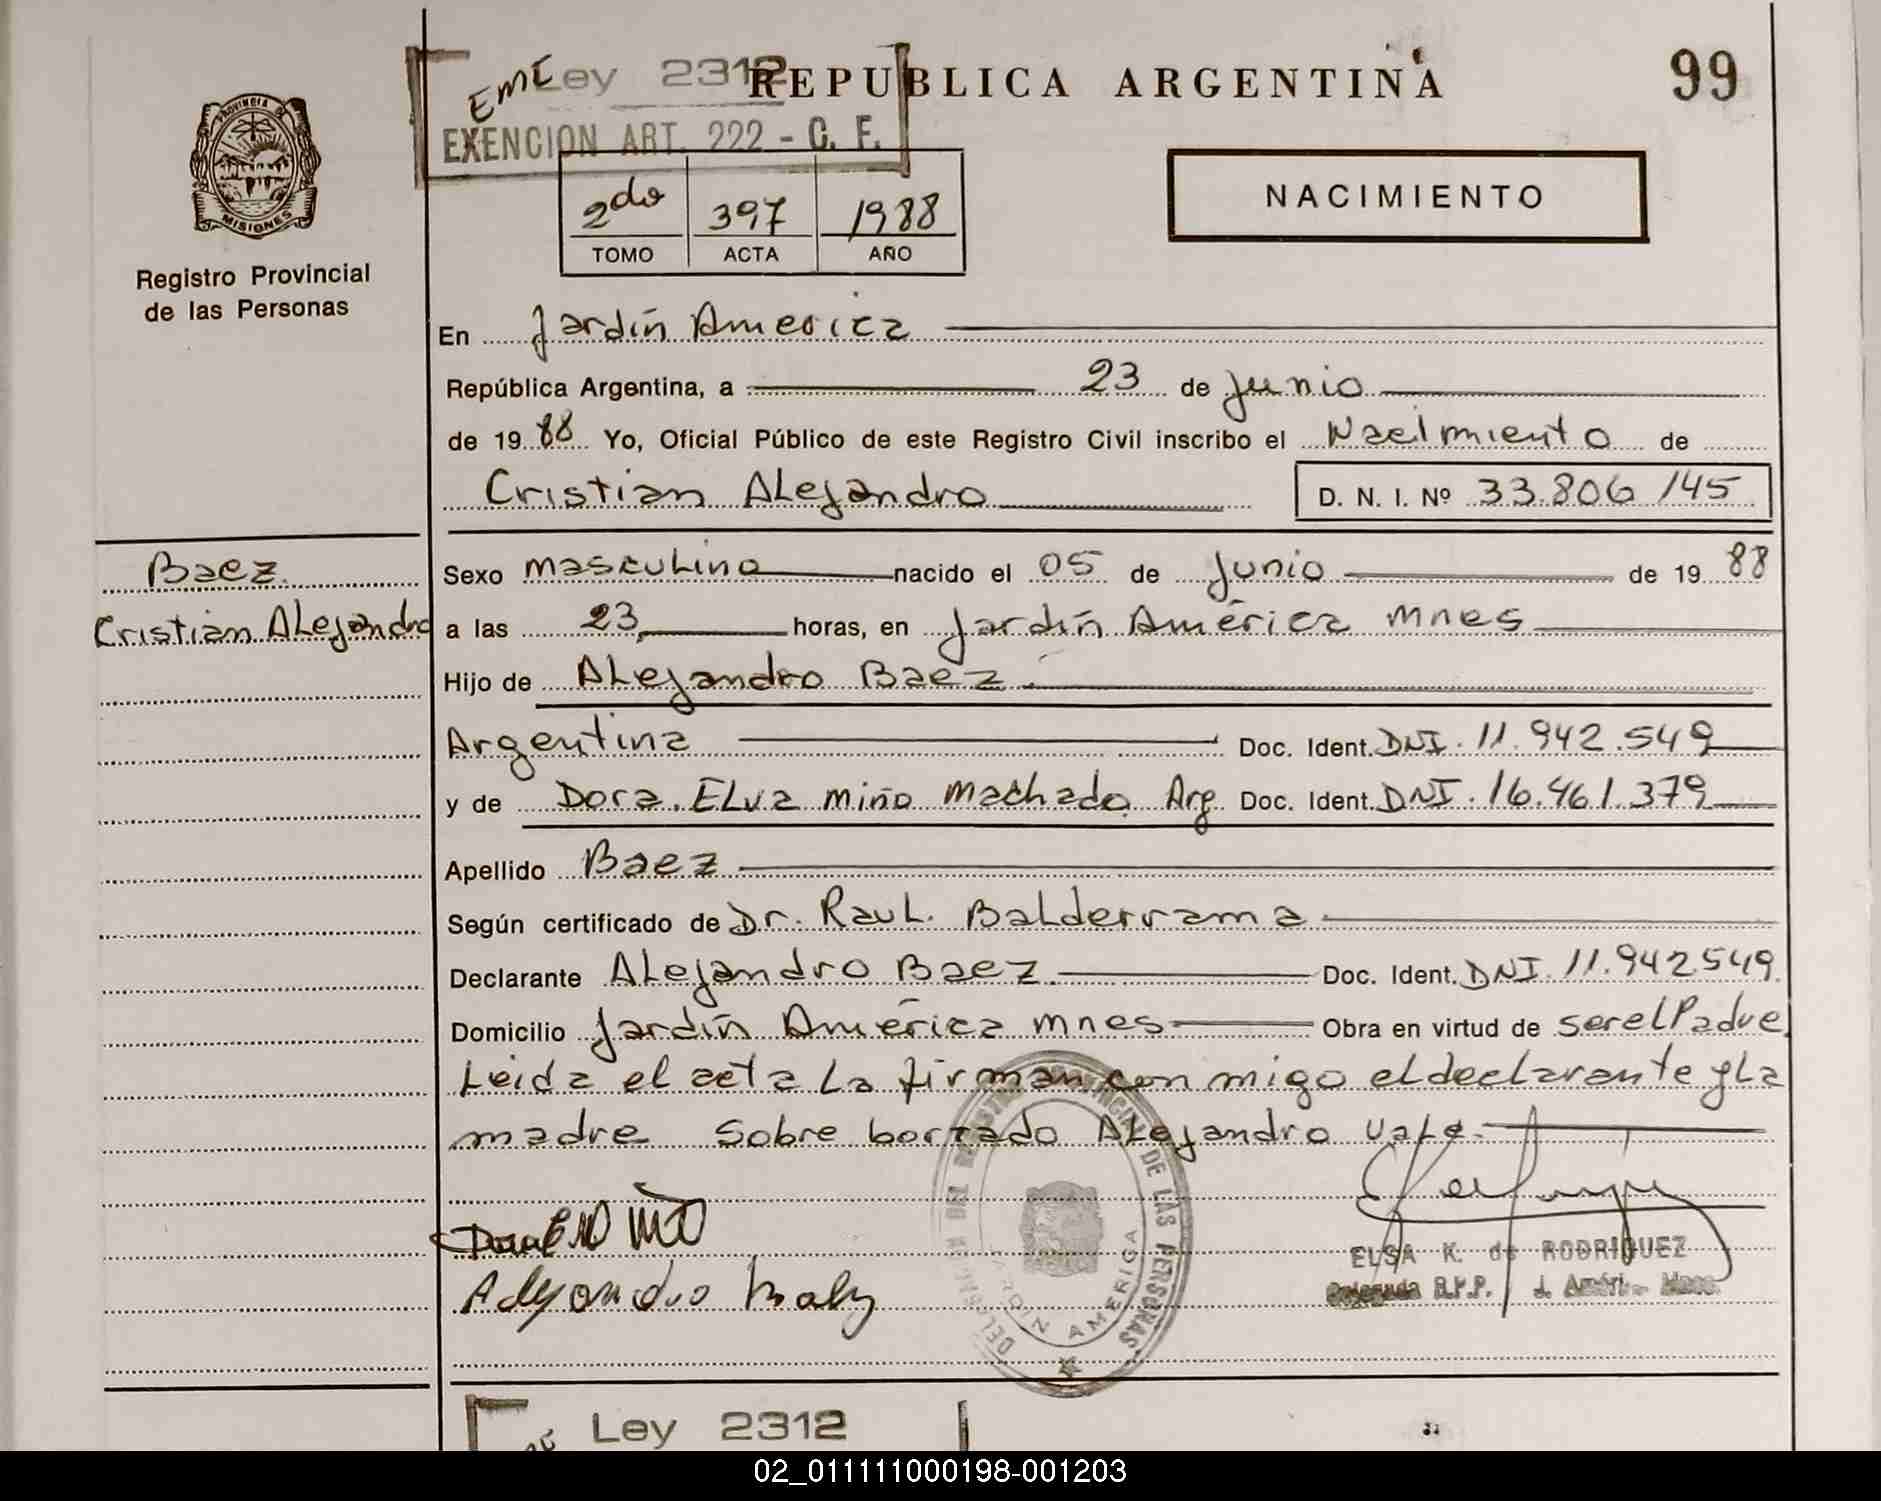 Ley 2312
REPUBLICA ARGENTINA
99
EXENCION ART. 222 - C. F.
PROVINCIA DE
MISIONES
Registro Provincial
de las Personas
NACIMIENTO
2do 397 1988
TOMO ACTA AÑO
En Jardín America
República Argentina, a 23 de Junio
de 1988 Yo, Oficial Público de este Registro Civil inscribo el Nacimiento de
Cristian Alejandro
D. N. I. Nº 33.806 145
Baez
Cristian Alejandro
Sexo masculino nacido el 05 de Junio de 1988
a las 23 horas, en Jardín América mnes
Hijo de Alejandro Baez
Argentina Doc. Ident. DNI. 11.942.549
y de Dora Elva miño machado Arg Doc. Ident. DNI. 16.461.379
Apellido Baez
Según certificado de Dr. Raul Balderrama
Declarante Alejandro Baez Doc. Ident. DNI. 11.942549
Domicilio Jardín América mnes Obra en virtud de ser el Padre
Leida el acta La firman con migo el declarante y La
madre Sobre borrado Alejandro Vale.
DEL REGISTRO PROVINCIAL DE LAS PERSONAS
JARDIN AMERICA
ELSA K. de RODRIGUEZ
Delegada R.P.P.
Ley 2312
02_011111000198-001203